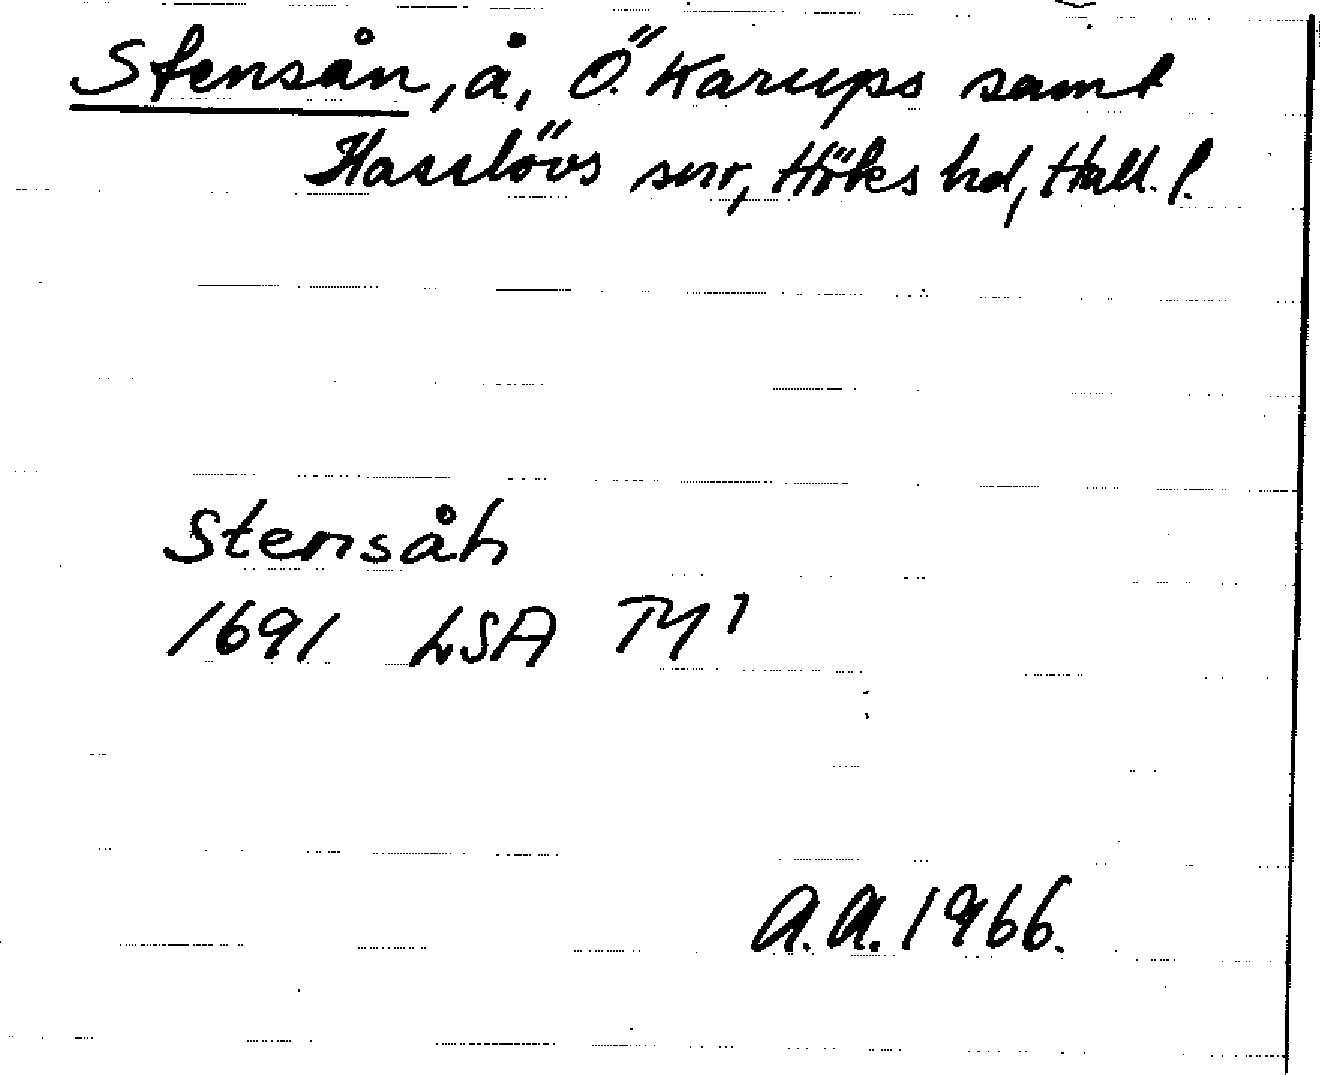 Stensån, å, Ö. Karups samt
Hasslövs snr, Höks hd, Hall. l.
Stensåh
1691 LSA TY 1
A.A. 1966.